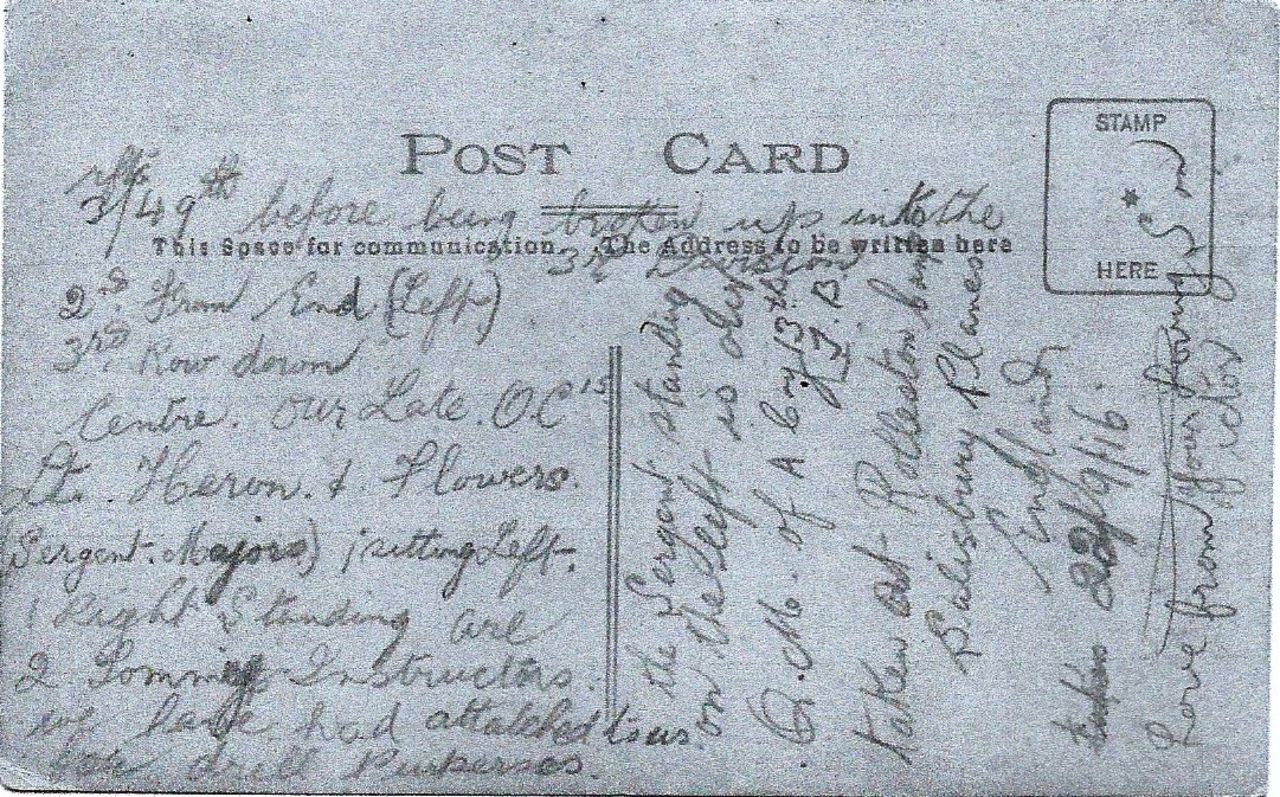 POST CARD
STAMP
HERE
3/49th before being broken up into the
This Space for communication. The Address to be written here
3rd Division
2nd From End (Left)
3rd Row down
Centre. Our Late. OC 15
Lt. Heron. & Flowers
Sergent. Majors) sitting Left.
Right Standing are
2 Tommy Instructors.
we have had attatched to us
for drill Purperses.
the Sergent standing
on the Left is
Q. M. of A Coy 13th
taken at Rolleston
Salisbury Planes
England
taken 22/9/16.
Love from your loving Son